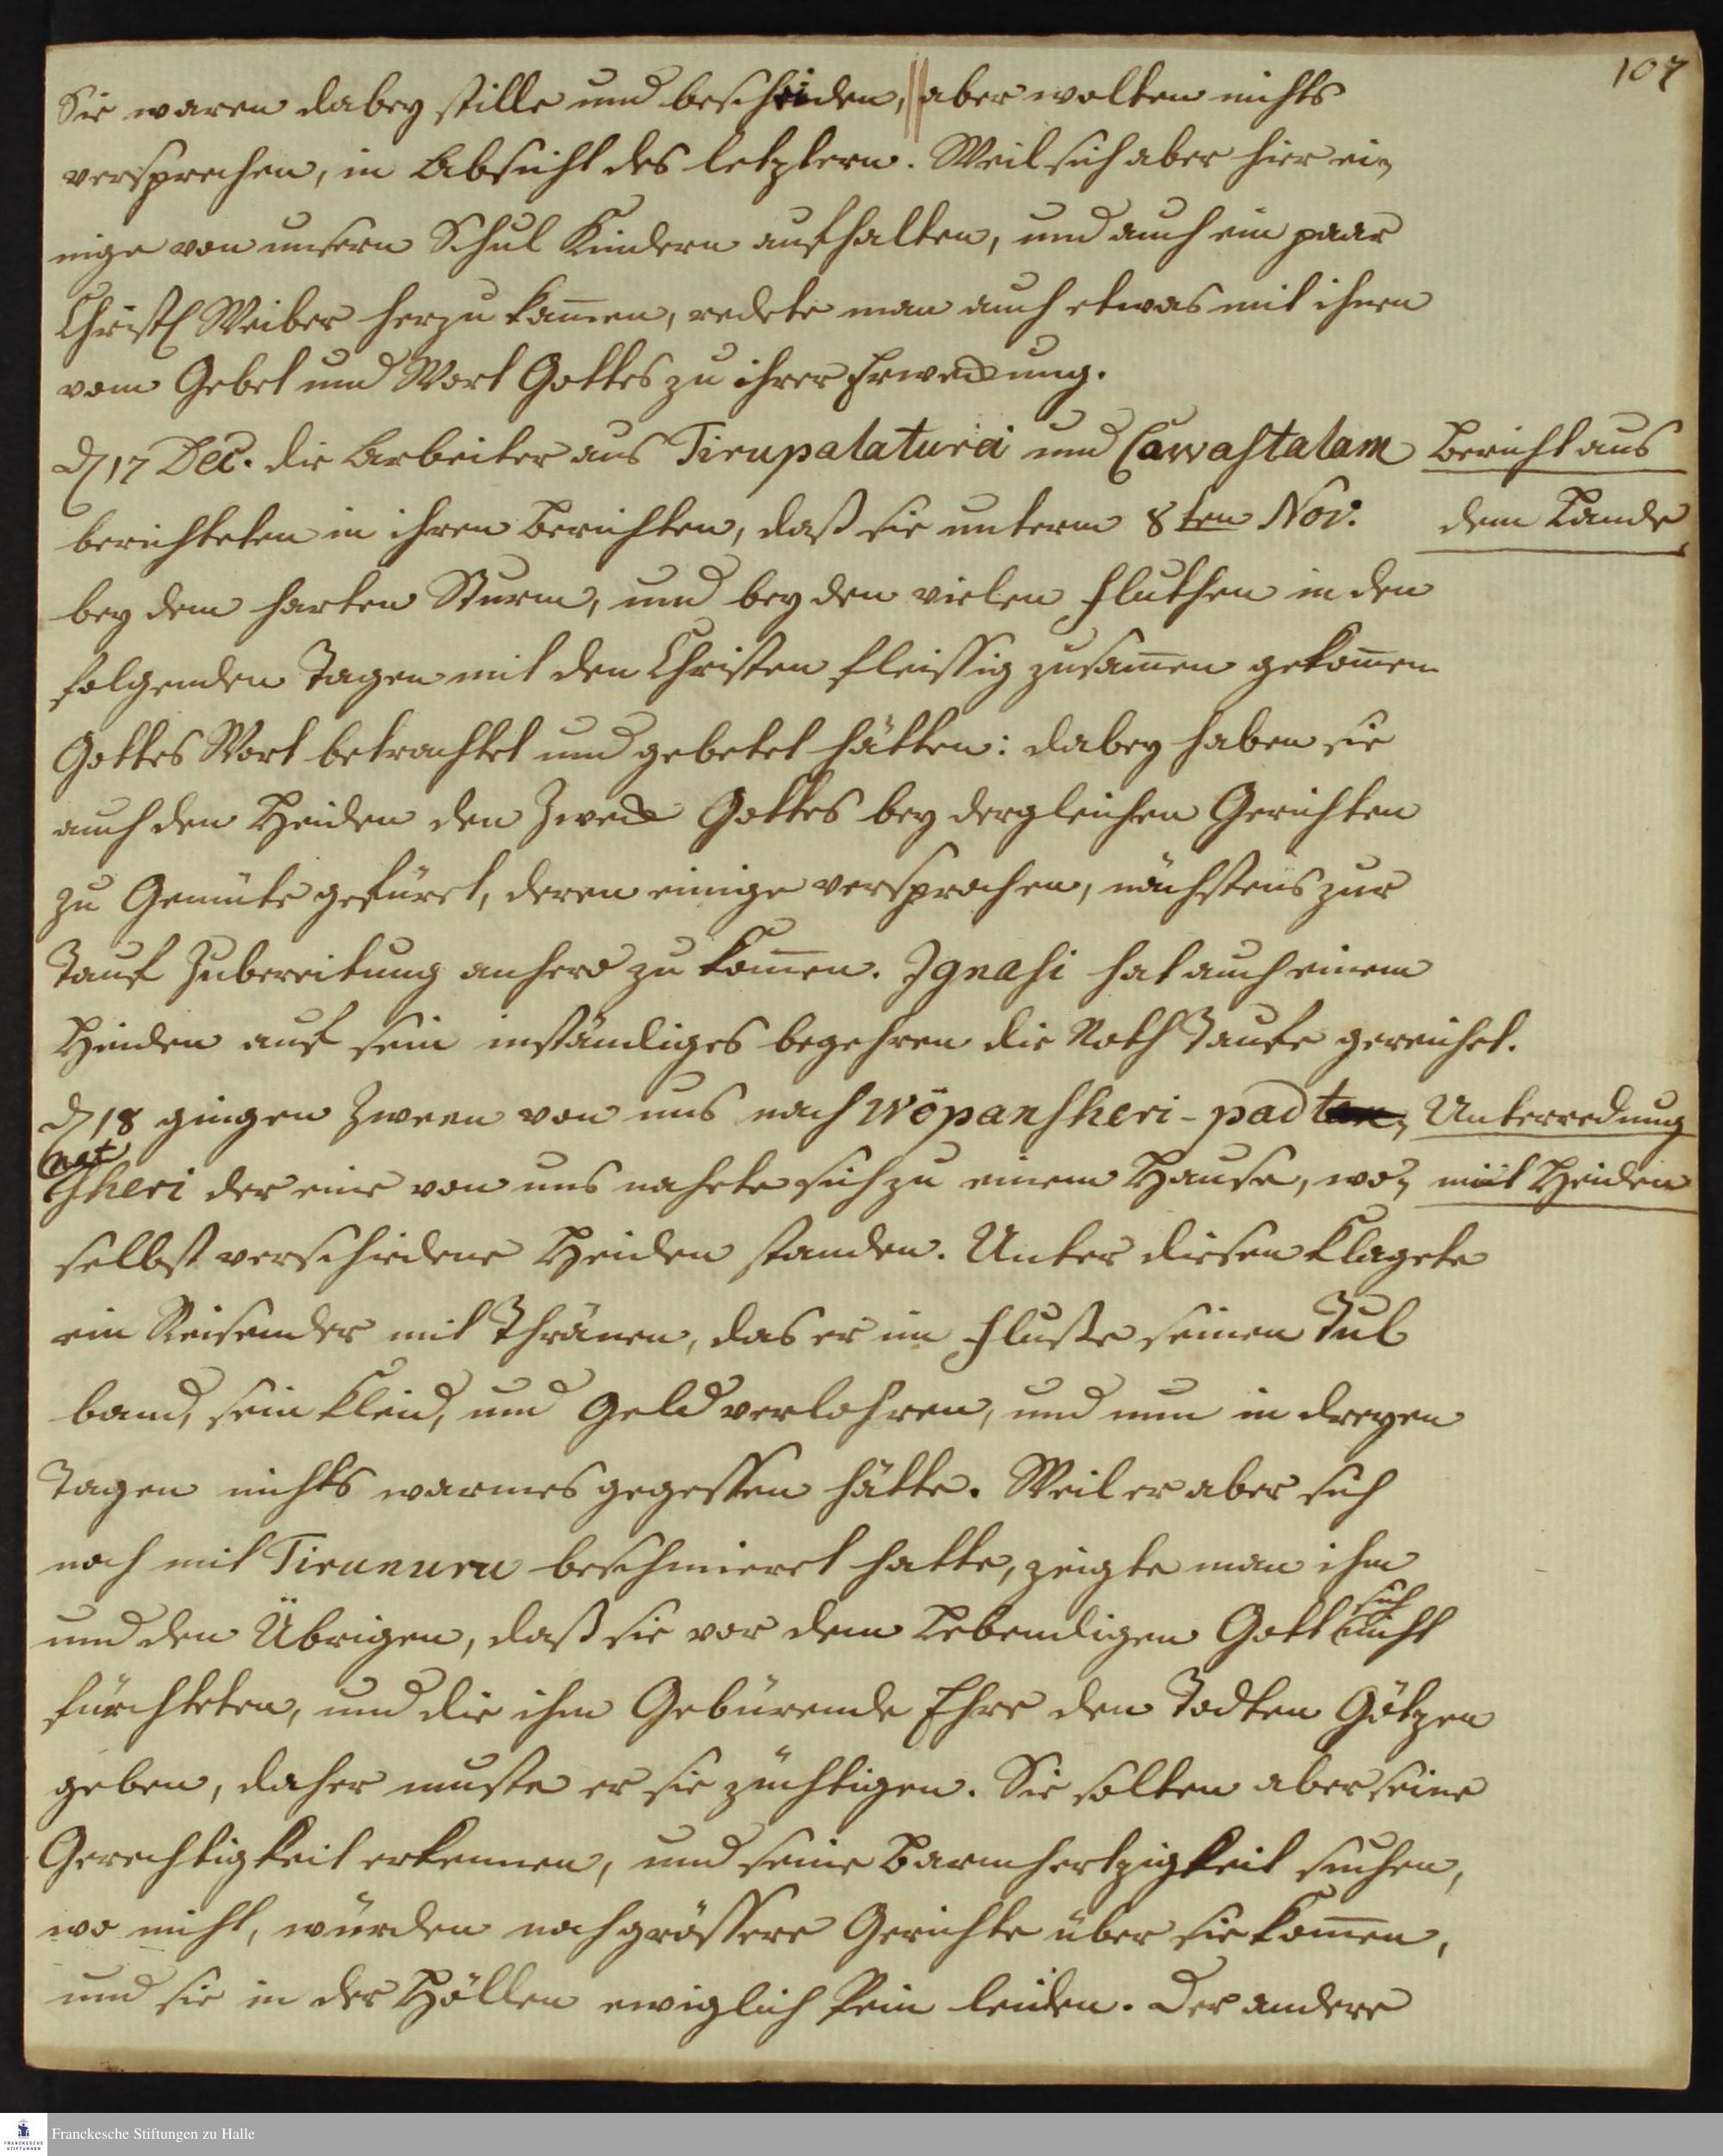 107
Sie waren dabey stille und bescheiden, aber wolten nichts
versprechen, in Absicht des letztern. Weil sich aber hier ei-
nige von unsern Schul Kindern aufhalten, und auch ein paar
Christl Weiber herzu kam̅en, redete man auch etwas mit ihnen
vom Gebet und Wort Gottes zu ihrer Erweckung.
d 17 Dec. die Arbeiter aus Tirupalaturei und Cawastalam
Bericht aus
berichteten in ihren Berichten, daß sie unterm 8ten Nov.
dem Lande
bey dem harten Sturm, und bey den vielen Fluthen in den
folgenden Tagen mit den Christen fleissig zusam̅en gekom̅en
Gottes Wort betrachtet und gebetet hätten: dabey haben sie
auch den Heiden den Zweck Gottes bey dergleichen Gerichten
zu Gemüte gefüret, deren einige versprochen, nächstens zur
Tauf Zubereitung anhero zu kom̅en. Ignasi hat auch einem
Heiden auf sein inständiges begehren die Noth Taufe gereichet.
d 18 gingen Zween von uns nach Wöpansheri-pad
Unterredung
nat
sheri der eine von uns nahete sich zu einem Hause, wo-
mit Heiden
selbst verschiedene Heiden standen. Unter diesen klagete
ein Reisender mit Thränen, das er im Fluße seinen Tul
band, sein Kleid, und Geld verlohren, und nun in dreyen
Tagen nichts warmes gegessen hätte. Weil er aber sich
noch mit Tirunuru beschmieret hatte, zeigte man ihm
und den Übrigen, daß sie vor dem Lebendigen Gott sich nicht
fürchteten, und die ihm Gebürende Ehre den Todten Götzen
geben, daher muste er sie züchtigen. Sie solten aber seine
Gerechtigkeit erkennen, und seine Barmhertzigkeit suchen,
wo nicht, würden noch grössere Gerichte über sie kom̅en,
und sie in der Höllen ewiglich Pein leiden. Der andere
Franckesche Stiftungen zu Halle